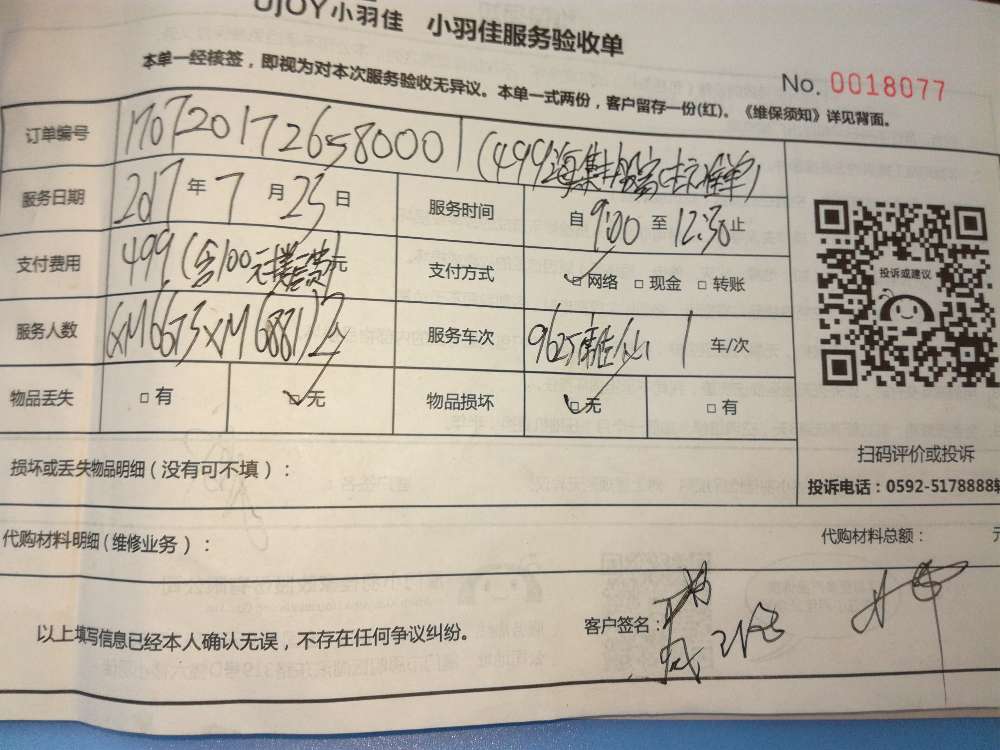 UJOY小羽佳 小羽佳服务验收单
本单一经核签，即视为对本次服务验收无异议。本单一式两份，客户留存一份(红)。《维保须知》详见背面。
No. 0018077
订单编号 170720172658000 1 (499
服务日期 2017 年 7 月 23 日 服务时间 自 9:00 至 12:30 止
支付费用 499 (含100元 元 支付方式 □ 网络 □ 现金 □ 转账
服务人数 XM6673 XM6887 2 服务车次 962 1 车/次
物品丢失 □ 有 □ 无 物品损坏 □ 无 □ 有
投诉或建议
扫码评价或投诉
投诉电话：0592-5178888转
损坏或丢失物品明细（没有可不填）：
代购材料明细（维修业务）： 代购材料总额： 元
以上填写信息已经本人确认无误，不存在任何争议纠纷。 客户签名：